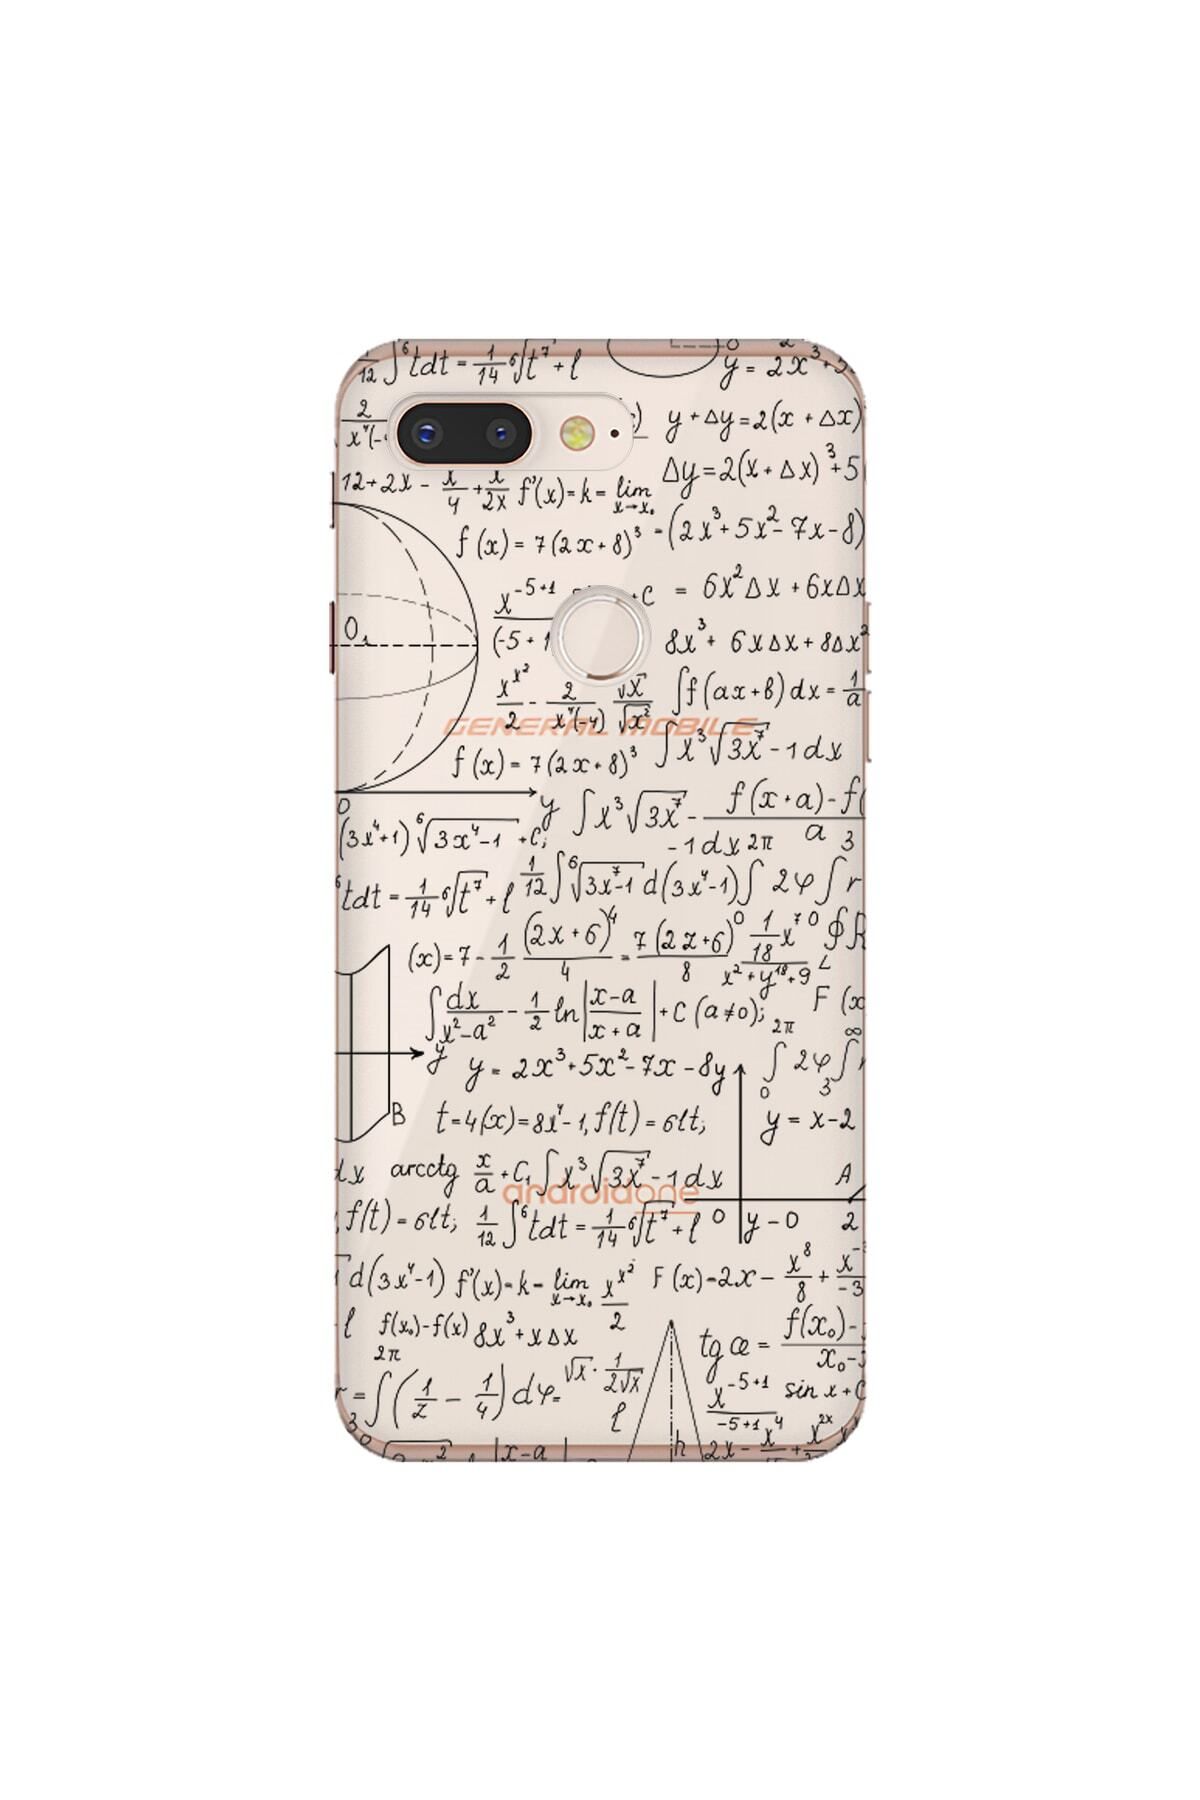 1/12 ∫ ⁶tdt = 1/14 ⁶√t⁷ + l
y = 2x³ + 5
y + Δy = 2(x + Δx)
Δy = 2(x + Δx)³ + 5
12 + 2x - x/4 + x/2x f'(x) = k = lim x→x₀
f(x) = 7(2x + 8)³ = (2x³ + 5x² - 7x - 8)
x⁻⁵⁺¹/(-5 + 1 + C = 6x²Δx + 6xΔx
O₁ 8x³ + 6xΔx + 8Δx²
x^x²/2 - 2/x⁴(-4) √x/√x² ∫f(ax + b)dx = 1/a
GENERAL MOBILE
f(x) = 7(2x + 8)³ ∫x³√3x⁷ - 1dx
0 y ∫x³√3x⁷ - 1dx f(x + a) - f( / a 2π 3
(3x⁴ + 1) ⁶√3x⁴ - 1 + C;
⁶tdt = 1/14 ⁶√t⁷ + l 1/12 ∫ ⁶√3x⁷ - 1 d(3x⁴ - 1) ∫ 2φ ∫ r
(x) = 7 - 1/2 (2x + 6)⁴/4 = 7(2z + 6)⁰/8 1/18 x⁷⁰/x² + y¹⁸ + 9 ∮R L
∫dx/x² - a² - 1/2 ln|x - a/x + a| + C (a ≠ 0); F(x
y y = 2x³ + 5x² - 7x - 8y 2π ∫ 0 2φ ∞ ∫ 3 r
B t = 4(x) = 8x⁴ - 1, f(t) = 6lt; y = x - 2
dx arcctg x/a + C₁ ∫x³√3x⁷ - 1dx A
androidone
f(t) = 6lt; 1/12 ∫ ⁶tdt = 1/14 ⁶√t⁷ + l 0 y - 0 2
d(3x⁴ - 1) f'(x) = k = lim x→x₀ x^x²/2 F(x) = 2x - x⁸/8 + x⁻/-3
l f(x₀) - f(x) 8x³ + xΔx tg æ = f(x₀) - / x₀ -
2π
r = ∫(1/2 - 1/4)dφ = √x · 1/2√x x⁻⁵⁺¹/-5+1 sin x + C
3 l
0 x - a h 2x - x⁴ + x²ˣ